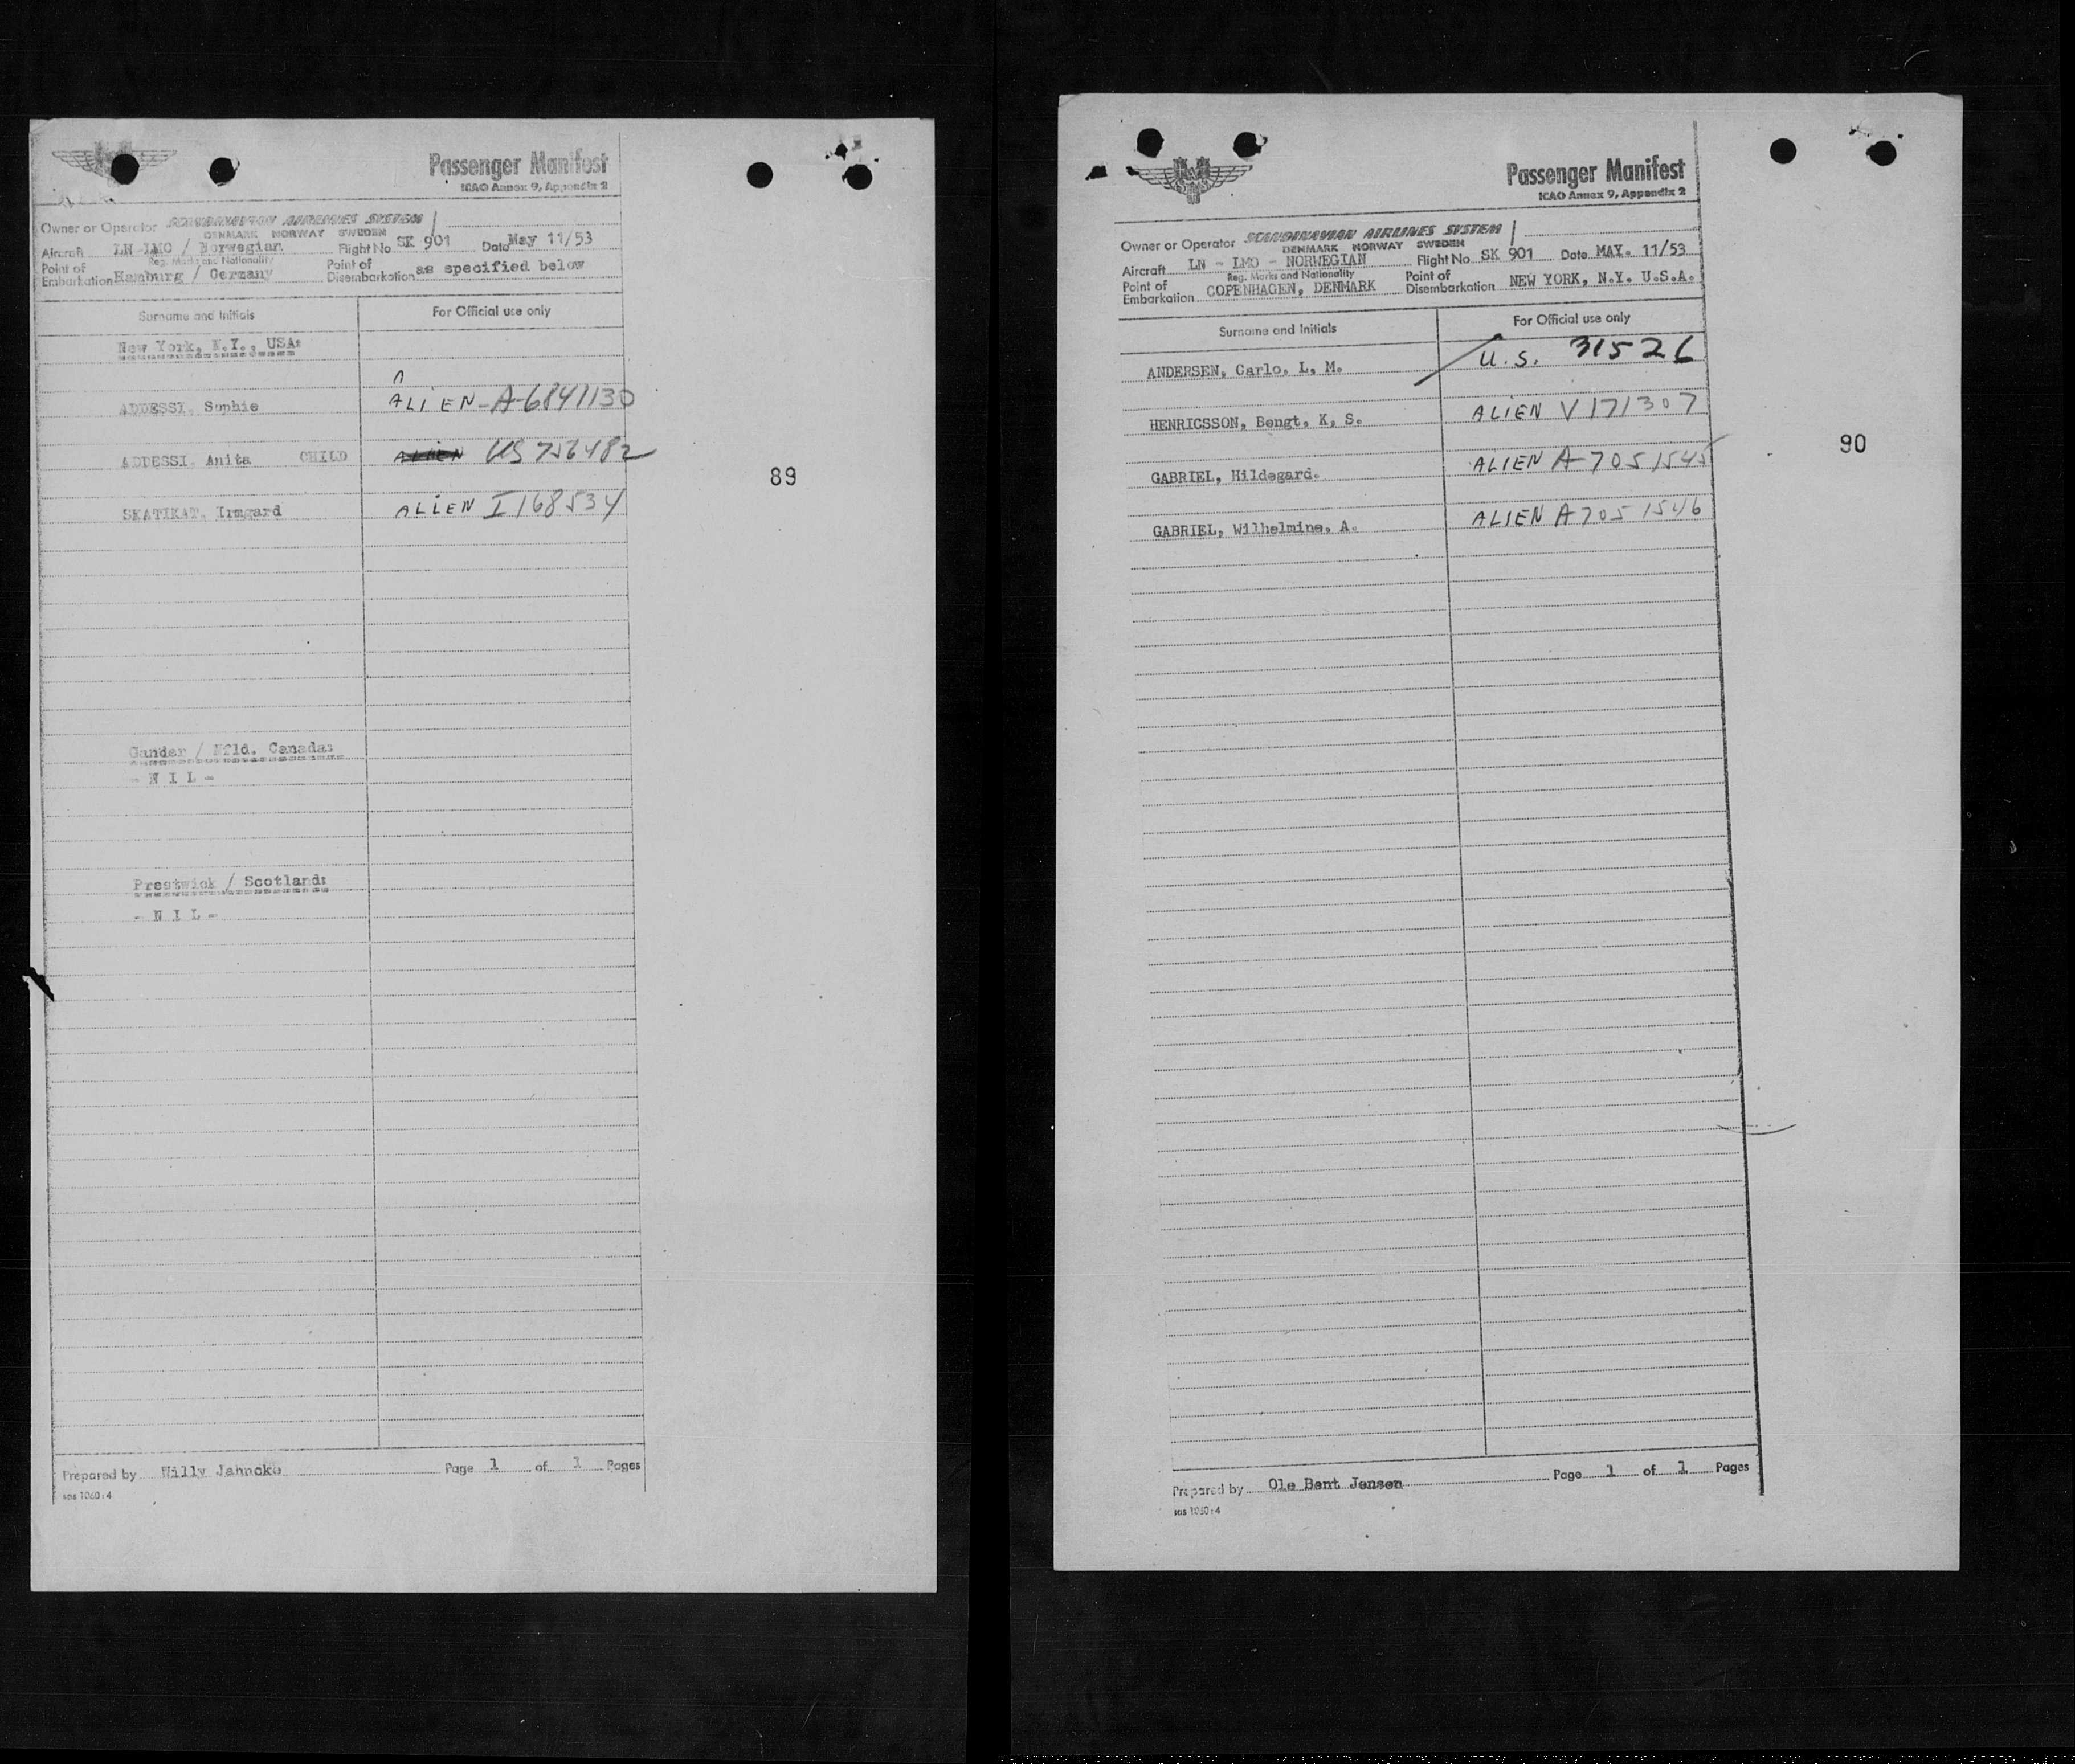 Passenger Manifest
ICAO Annex 9, Appendix 2
Owner or Operator SCANDINAVIAN AIRLINES SYSTEM
DENMARK NORWAY SWEDEN
Aircraft LN-LMO / Norwegian Flight No SK 901 Date May 11/53
Reg. Marks and Nationality
Point of Embarkation Hamburg / Germany Point of Disembarkation as specified below
Surname and Initials For Official use only
New York, N.Y., USA:
ADDESSI, Sophie ALIEN - A-6841130
ADDESSI, Anita CHILD ALIEN US 756482
SKATIKAT, Irmgard ALIEN I168534
89
Gander / Nfld. Canada:
- N I L -
Prestwick / Scotland:
- N I L -
Prepared by Willy Jahncke Page 1 of 1 Pages
sas 1060:4
Passenger Manifest
ICAO Annex 9, Appendix 2
Owner or Operator SCANDINAVIAN AIRLINES SYSTEM
DENMARK NORWAY SWEDEN
Aircraft LN - LMO - NORWEGIAN Flight No SK 901 Date MAY. 11/53
Reg. Marks and Nationality
Point of Embarkation COPENHAGEN, DENMARK Point of Disembarkation NEW YORK, N.Y. U.S.A.
Surname and Initials For Official use only
ANDERSEN, Carlo, L, M. U.S. 31526
HENRICSSON, Bengt, K, S. ALIEN V171307
GABRIEL, Hildegard. ALIEN A-7051545
90
GABRIEL, Wilhelmine, A. ALIEN A7051546
Prepared by Ole Bent Jensen Page 1 of 1 Pages
sas 1060:4